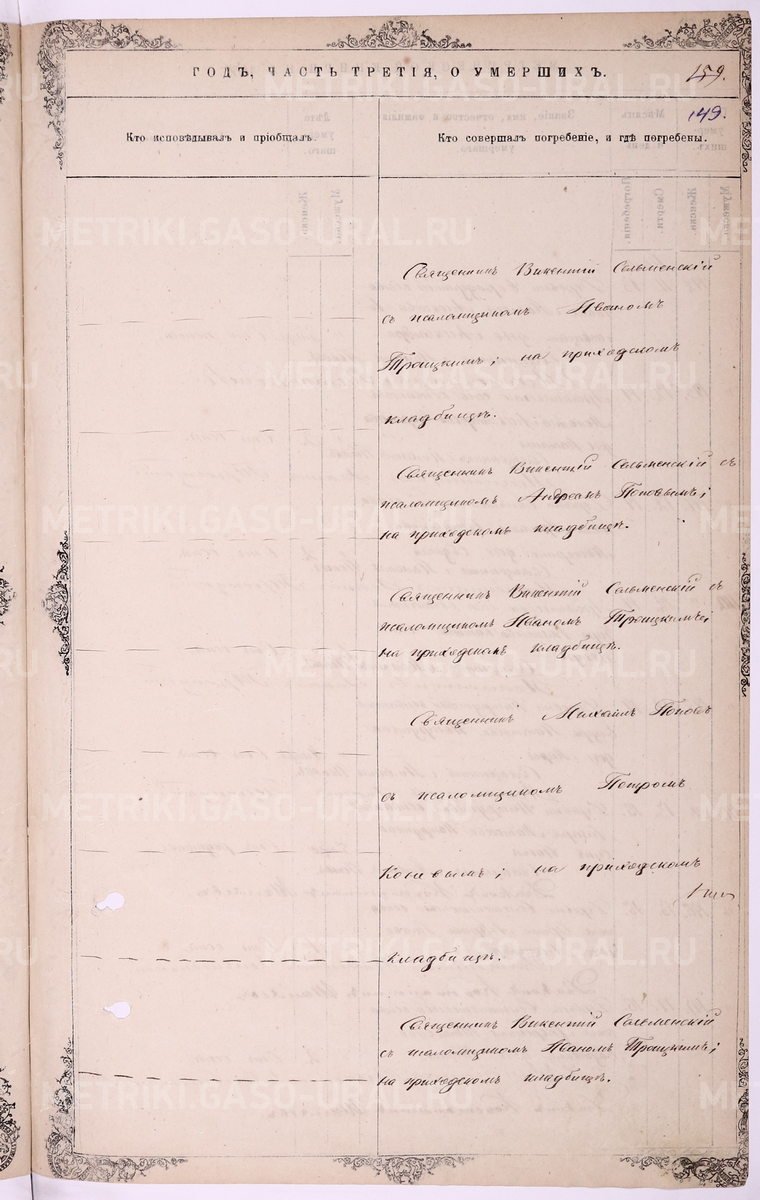 ГОДЪ, ЧАСТЬ ТРЕТІЯ, О УМЕРШИХЪ.
159.
149.
Кто исповѣдывалъ и пріобщалъ.
Кто совершалъ погребеніе, и гдѣ погребены.
Священникъ Викентій Сельменскій
съ псаломщикомъ Иваномъ
Троицкимъ; на приходскомъ
кладбищѣ.
Священникъ Викентій Сельменскій съ
псаломщикомъ Андреемъ Поповымъ;
на приходскомъ кладбищѣ.
Священникъ Викентій Сельменскій съ
псаломщикомъ Иваномъ Троицкимъ;
на приходскомъ кладбищѣ.
Священникъ Михаилъ Поповъ
съ псаломщикомъ Петромъ
; на приходскомъ
кладбищѣ.
Священникъ Викентій Сельменскій
съ псаломщикомъ Иваномъ Троицкимъ;
на приходскомъ кладбищѣ.
METRIKI.GASO-URAL.RU